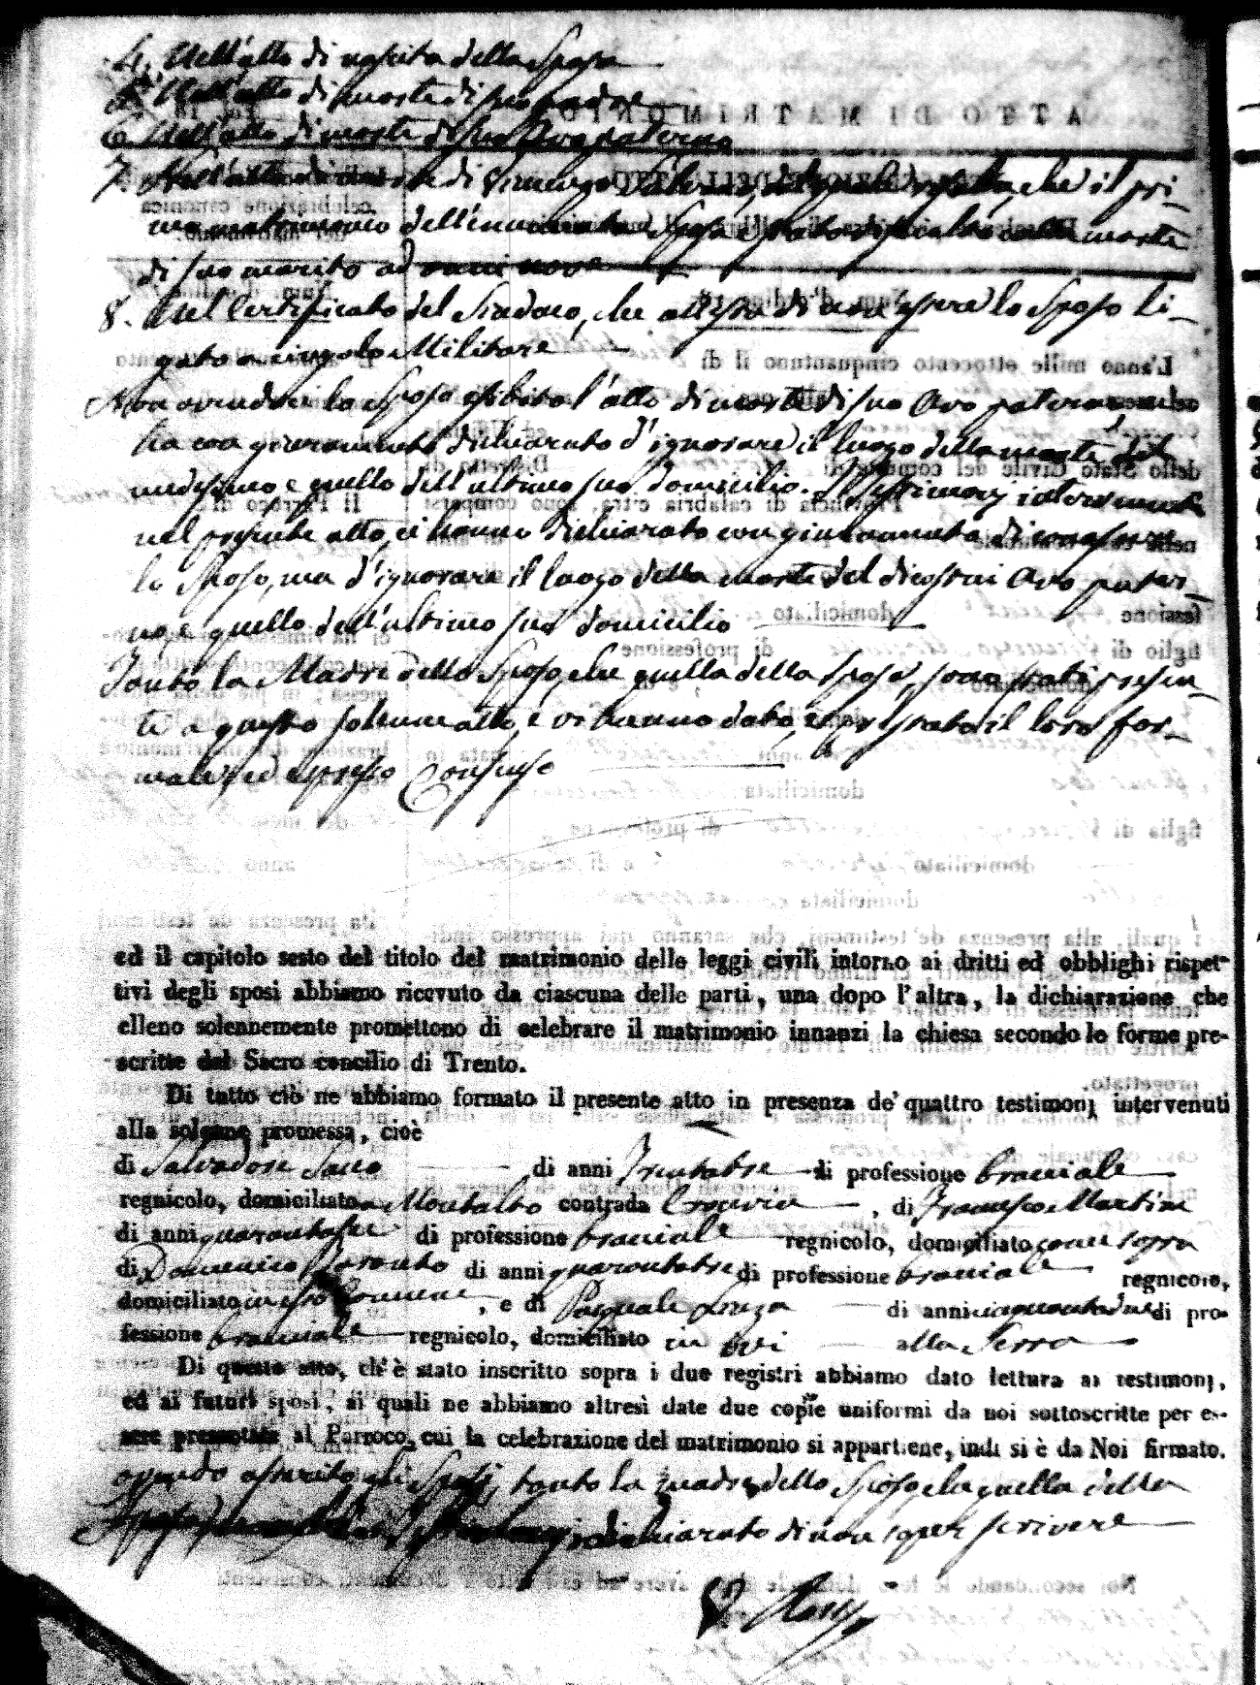 4. Nell'atto di nascita della Sposa
5. Nell'atto di morte di suo padre
6. Nell'atto di morte di suo Avo paterno
7. Nell'atto di morte di Vincenzo dal quale risulta, che il pri-
mo matrimonio dell'enunciata Sposa è stato disciolto colla morte
di suo marito ad anni nove
8. Nel Certificato del Sindaco, che attesta di non essere lo Sposo li-
gato a cingolo Militare
Non avendoci la Sposa esibito l'atto di morte di suo Avo paterno
ha con giuramento dichiarato d'ignorare il luogo della morte del
medesimo e quello dell'ultimo suo domicilio. I testimonj intervenuti
nel presente atto, ci hanno dichiarato con giuramento di conoscere
lo Sposo, ma d'ignorare il luogo della morte del dicostui Avo pater-
no, e quello dell'ultimo suo domicilio
Tanto la Madre dello Sposo, che quella della Sposa, sono state presen-
ti a questo solenne atto, e vi hanno dato, e prestato il loro for-
male, ed espresso Consenso
ed il capitolo sesto del titolo del matrimonio delle leggi civili intorno ai dritti ed obblighi rispet-
tivi degli sposi abbiamo ricevuto da ciascuna delle parti, una dopo l'altra, la dichiarazione che
elleno solennemente promettono di celebrare il matrimonio innanzi la chiesa secondo le forme pre-
scritte dal Sacro concilio di Trento.
Di tutto ciò ne abbiamo formato il presente atto in presenza de' quattro testimonj intervenuti
alla solenne promessa, cioè
di Salvadore Sacco di anni Trentatre di professione bracciale
regnicolo, domiciliato a Montalto contrada , di Francesco Martire
di anni quarantasei di professione bracciale regnicolo, domiciliato come sopra
di Domenico Taranto di anni quarantatre di professione bracciale regnicolo,
domiciliato in esso Comune, e di Pasquale di anni cinquantadue di pro-
fessione bracciale regnicolo, domiciliato in ivi alla Serra
Di questo atto, ch'è stato inscritto sopra i due registri abbiamo dato lettura ai testimonj,
ed ai futuri sposi, ai quali ne abbiamo altresì date due copie uniformi da noi sottoscritte per es-
sere presentate al Parroco, cui la celebrazione del matrimonio si appartiene, indi si è da Noi firmato.
avendo asserito gli Sposi, tanto la madre dello Sposo, che quella della
Sposa dichiarato di non saper scrivere